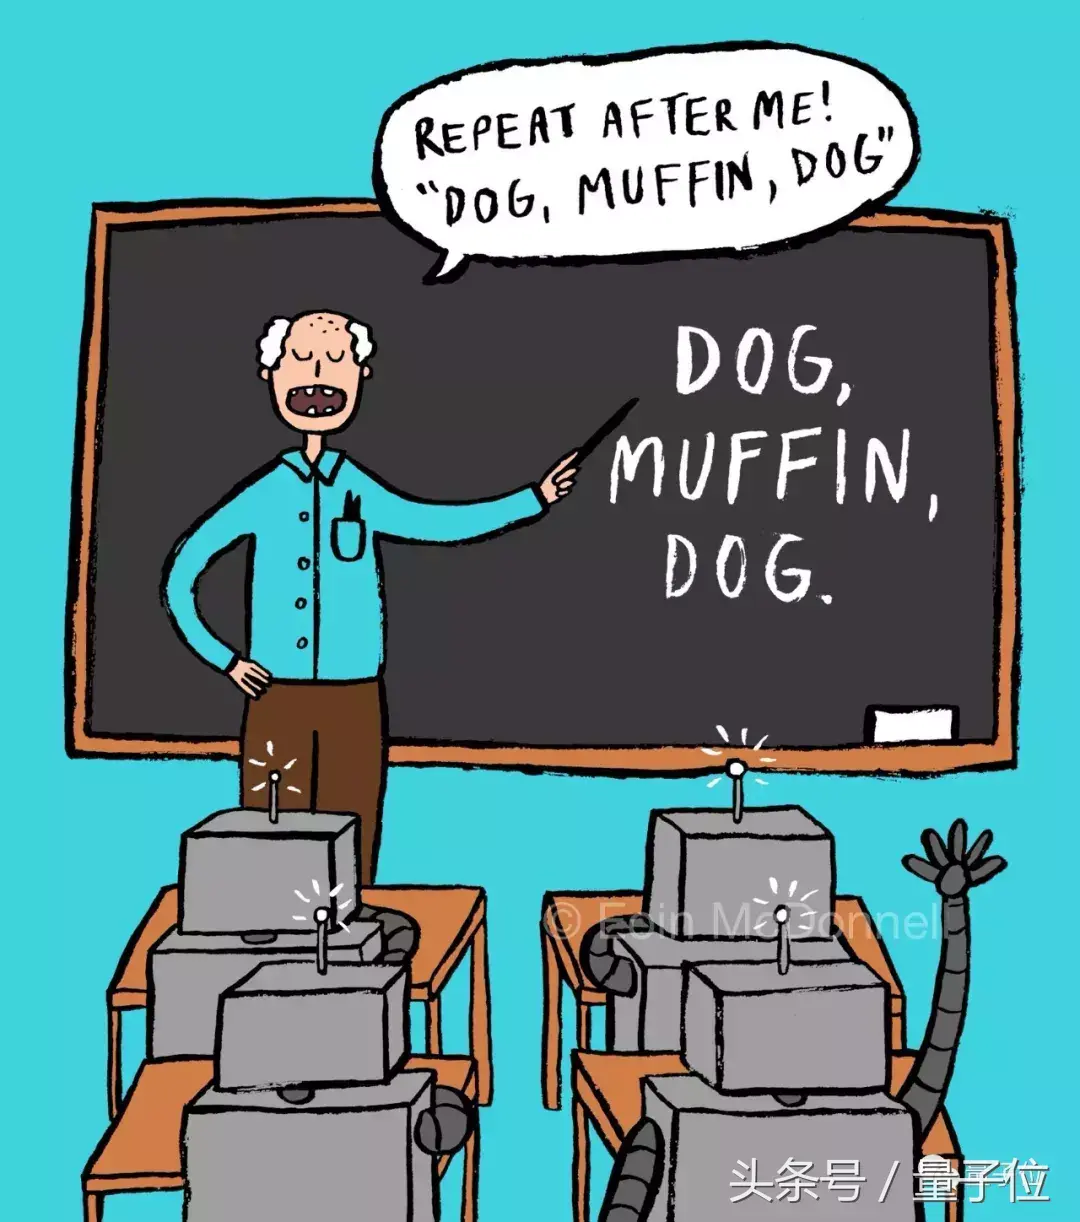 REPEAT AFTER ME!
"DOG, MUFFIN, DOG"
DOG,
MUFFIN,
DOG.
© Eoin McDonnell
头条号 / 量子位